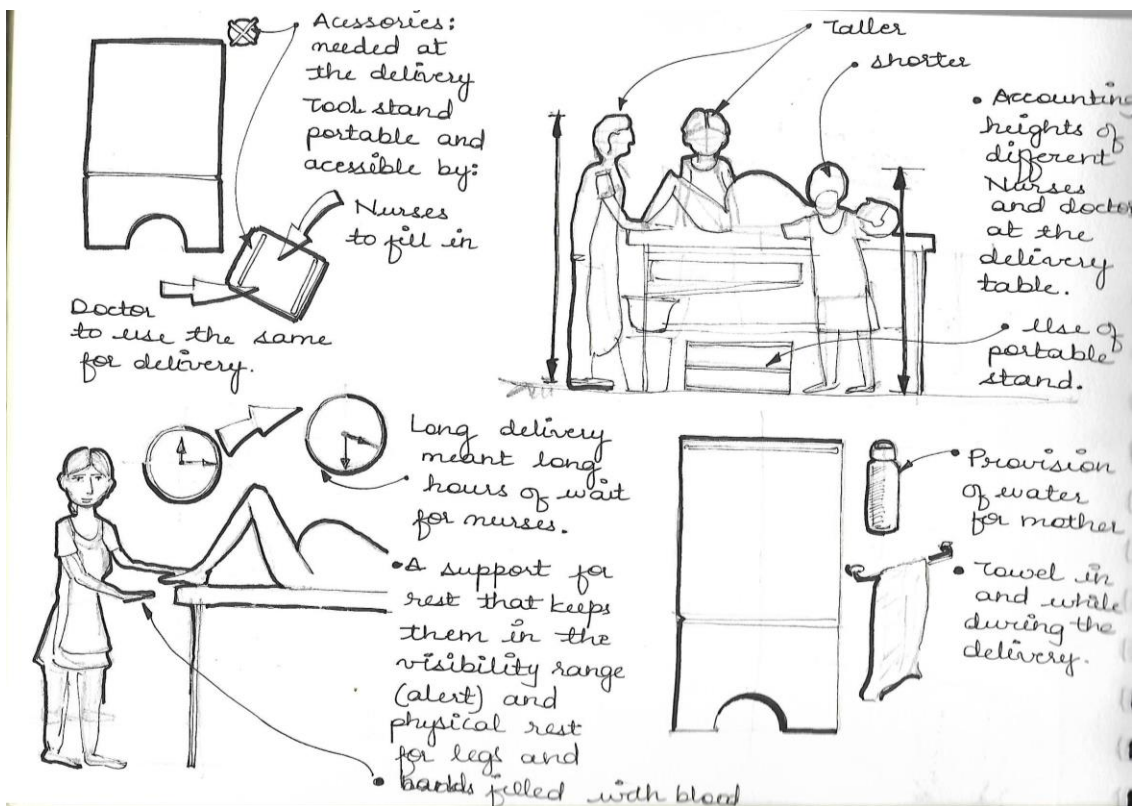 Acessories:
needed at
the delivery
Tool stand
portable and
acessible by:
Nurses
to fill in
Doctor
to use the same
for delivery.
Taller
shorter
Accounting
heights of
different
Nurses
and doctor
at the
delivery
table.
Use of
portable
stand.
Long delivery
meant long
hours of wait
for nurses.
A support for
rest that keeps
them in the
visibility range
(alert) and
physical rest
for legs and
hands filled with blood
Provision
of water
for mother
Towel in
and while
during the
delivery.